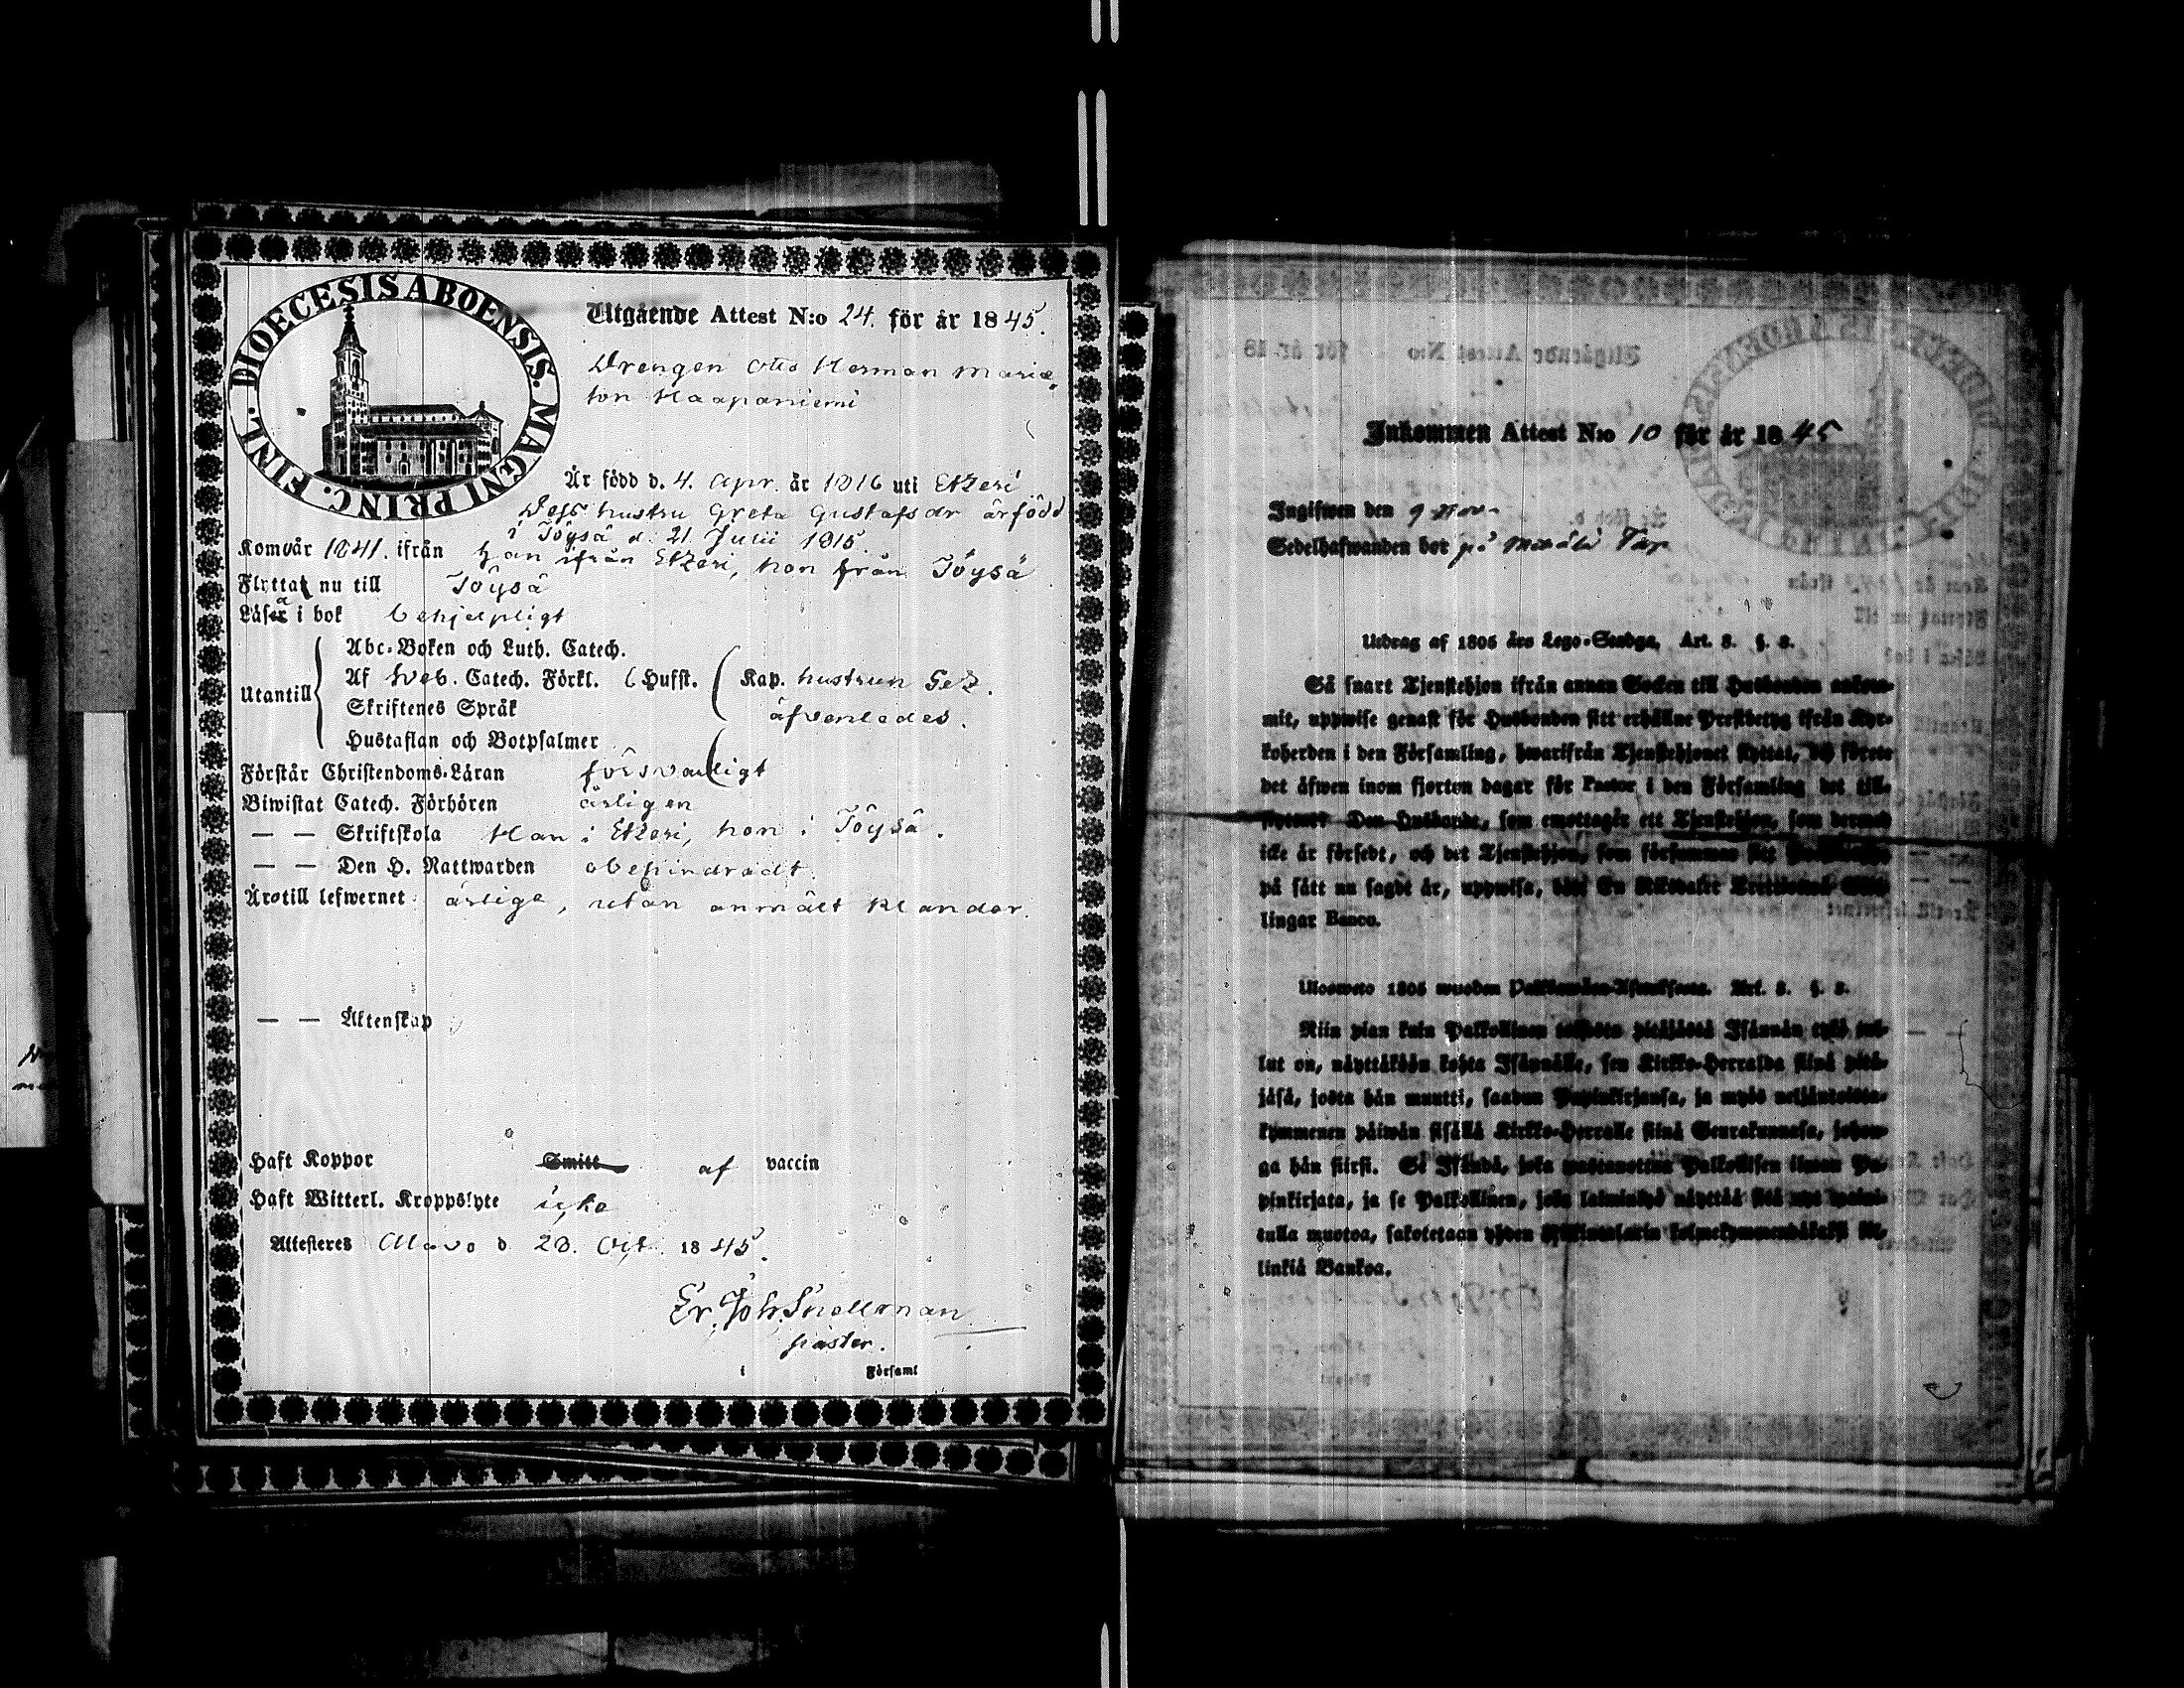 DIOECESIS ABOENSIS. MAGNI PRINC. FINL.
Utgående Attest N:o 24. för år 1845.
Drengen Otto Herman
Haapaniemi
Är född d. 4. Apr. år 1816 uti Etzeri
Dess hustru Greta Gustafsdr är född
i Töysä d. 21. Julii 1815.
Kom år 1841. ifrån han ifrån Etzeri, hon från Töysä
Flytta nu till Töysä
Läsa i bok behjelpligt
Utantill
Abc-Boken och Luth. Catech.
Af Sveb. Catech. Förkl. 6 Hufst. Kap. hustrun Gez.
Skriftenes Språk äfvenledes.
Hustaflan och Botpsalmer
Förstår Christendoms-Läran försvarligt
Biwistat Catech. Förhören årligen
— — Skriftskola Han i Etzeri, hon i Töysä.
— — Den H. Nattwarden obehindradt.
Äro till lefwernet ärliga, utan anmält klander.
— — Äktenskap
Haft Koppor Smitt af vaccin
Haft Witterl. Kroppslyte icke
Attesteres Alavo d. 28. Oct. 1845.
Er. Joh. Snellman
Pastor.
i Församl
Inkommen Attest N:o 10 för år 1845
Ingifwen den 9 Nov.
Sedelhafwanden bor på Torp
Utdrag af 1805 års Lego-Stadga, Art. 8. §. 8.
Så snart Tjenstehjon ifrån annan Socken till Husbonden ankom-
mit, uppwise genast för Husbonden sitt erhållne Prestbetyg ifrån Kyr-
koherden i den Församling, hwarifrån Tjenstehjonet flyttat, och förete
det äfwen inom fjorton dagar för Pastor i den Församling det till-
flyttat. Den Husbonde, som emottagit ett Tjenstehjon, som dermed
icke är försedt, och det Tjenstehjon, som försummar sitt
på sätt nu sagdt är, uppwisa, böte En Riksdaler
lingar Banco.
Ulosweto 1805 wuoden Art. 8. §. 8.
Niin pian kuin Palkollinen toisesta pitäjästä Isännän tykö tul-
lut on, näyttäköön kohta Isännälle, sen Kirkko-Herralda siinä pitä-
jäsä, josta hän muutti, saadun Papinkirjansa, ja myös neljäntoista-
kymmenen päiwän sisällä Kirkko-Herralle siinä Seurakunnasa, johon-
ga hän siirsi. Se Isändä, joka wastaanottaa Palkollisen ilman Pa-
pinkirjata, ja se Palkollinen, joka laiminlyö näyttää sitä nyt maini-
tulla muotoa, sakotetaan yhden
linkiä Bankoa.